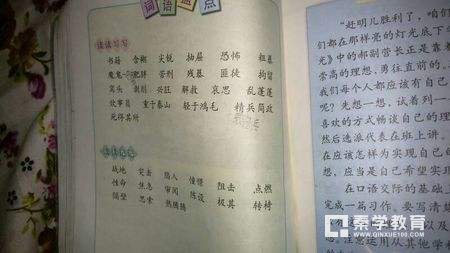 词语盘点
读读写写
书籍 含糊 尖锐 抽屉 恐怖 粗暴
魔鬼 肥胖 苦刑 残暴 匪徒 拘留
窝头 剥削 兴旺 解放 哀思 乱蓬蓬
炊事员 重于泰山 轻于鸿毛 精兵简政
死得其所
战地 突击 陷入 憧憬 阻击 点燃
性命 焦急 审阅 陈设 极其 转椅
隔壁 思索 热腾腾
“赶明儿胜利了,咱们
们都在那样亮的灯光底下
光》中的郝副营长正是靠着
崇高的理想、勇往直前的。
我们每个人都应该有自己
呢?先想一想,试着列一
喜欢的方式畅谈自己的理
然后选派代表在班上讲。
在应该怎样为实现自己
想,应当是自己希望实现
在口语交际的基础
完成一篇习作。要写清楚
秦学教育
WWW.QINXUE100.COM
想。注意运用从其他学